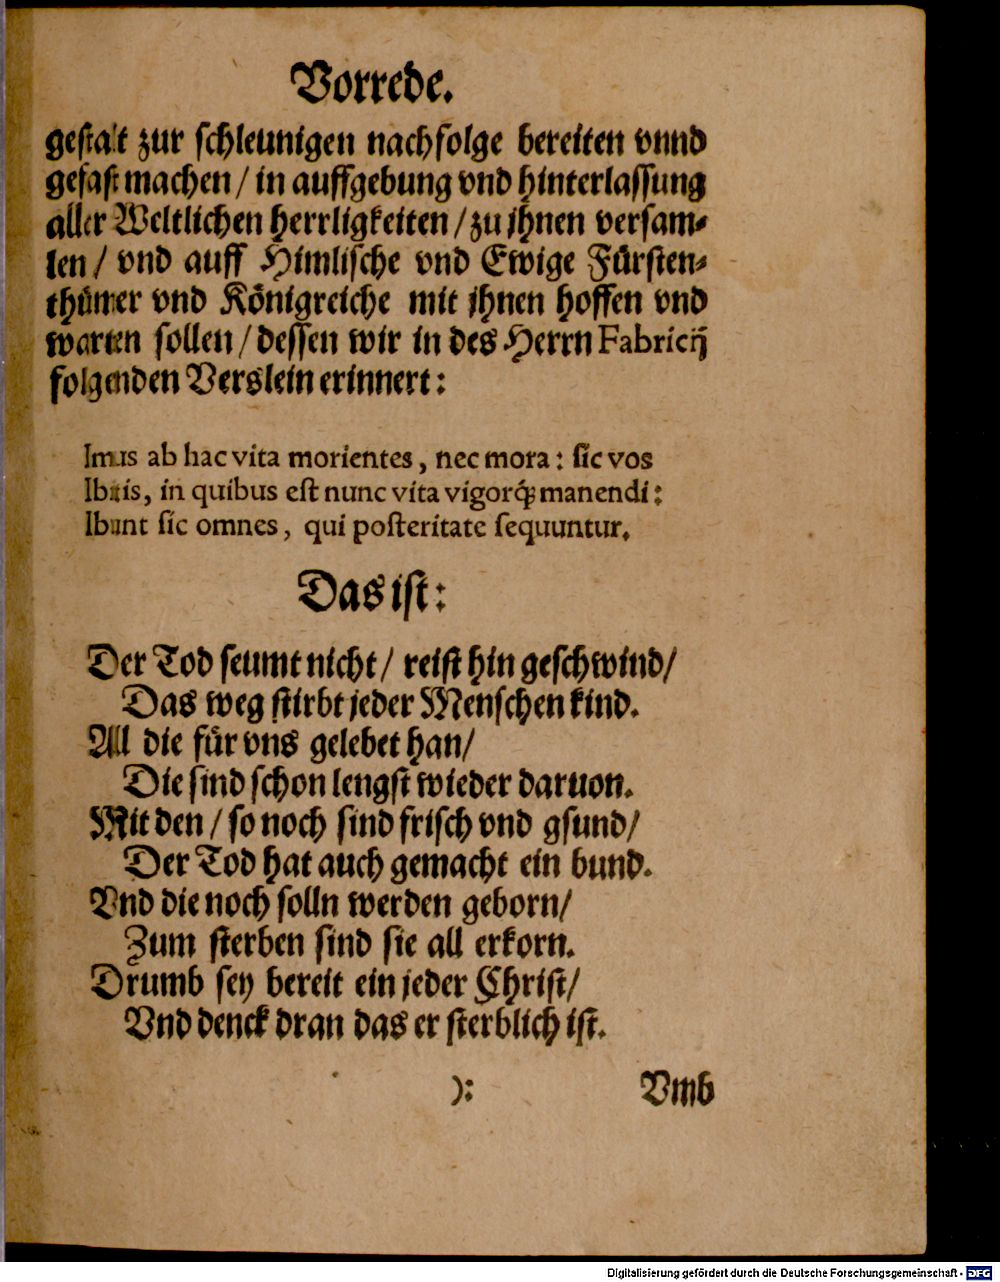 Vorrede.
gestalt zur schleunigen nachfolge bereiten vnnd
gefast machen / in auffgebung vnd hinterlassung
aller Weltlichen herrligkeiten / zu jhnen versam-
len / vnd auff Himlische vnd Ewige Fürsten-
thümer vnd Königreiche mit jhnen hoffen vnd
warten sollen / dessen wir in des Herrn Fabricij
folgenden Verslein erinnert:
Imus ab hac vita morientes, nec mora: sic vos
Ibitis, in quibus est nunc vita vigorq́; manendi:
Ibunt sic omnes, qui posteritate sequuntur.
Das ist:
Der Tod seumt nicht / reist hin geschwind /
Das weg stirbt jeder Menschen kind.
All die für vns gelebet han /
Die sind schon lengst wieder daruon.
Mit den / so noch sind frisch vnd gsund /
Der Tod hat auch gemacht ein bund.
Vnd die noch solln werden geborn /
Zum sterben sind sie all erkorn.
Drumb sey bereit ein jeder Christ /
Vnd denck dran das er sterblich ist.
):  Vmb
Digitalisierung gefördert durch die Deutsche Forschungsgemeinschaft - DFG